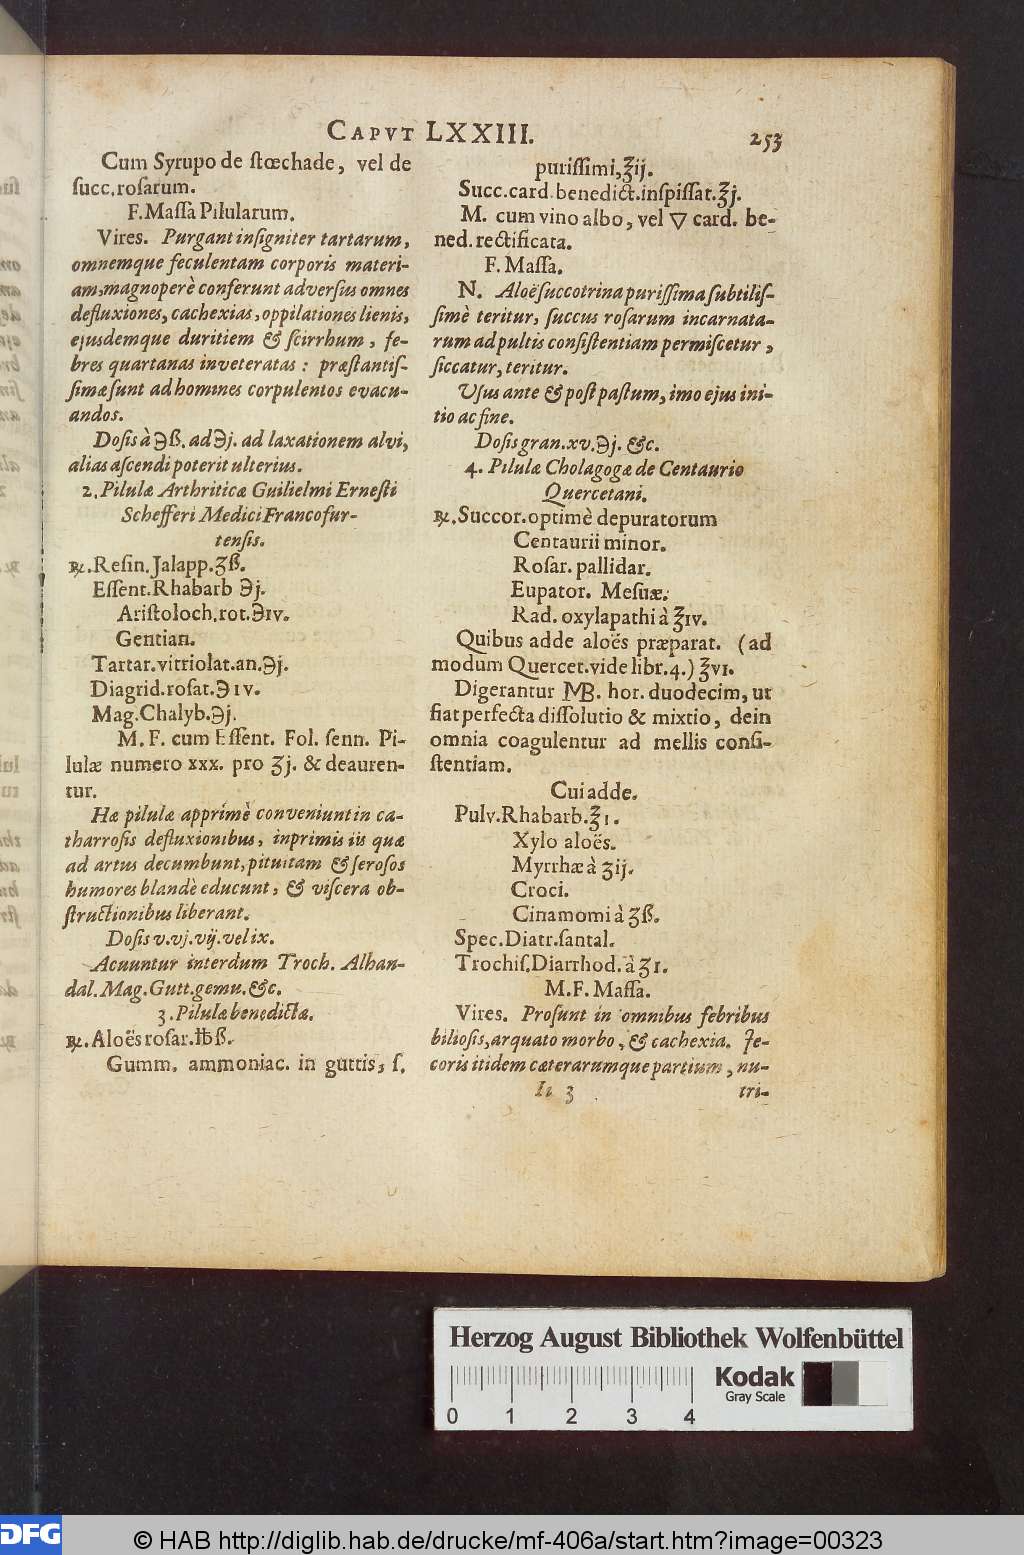 CAPVT LXXIII. 253
Cum Syrupo de stœchade, vel de
succ. rosarum.
F. Massa Pilularum.
Vires. Purgant insigniter tartarum,
omnemque feculentam corporis materi-
am, magnoperè conferunt adversus omnes
defluxiones, cachexias, oppilationes lienis,
ejusdemque duritiem & scirrhum, fe-
bres quartanas inveteratas: præstantis-
simæ sunt ad homines corpulentos evacu-
andos.
Dosis à ℈ß. ad ℈j. ad laxationem alvi,
alias ascendi poterit ulterius.
2. Pilulæ Arthriticæ Guilielmi Ernesti
Schefferi Medici Francofur-
tensis.
℞. Resin. Jalapp. ʒß.
Essent. Rhabarb ℈j.
Aristoloch. rot. ℈ıv.
Gentian.
Tartar. vitriolat. an. ℈j.
Diagrid. rosat. ℈ıv.
Mag. Chalyb. ℈j.
M. F. cum Essent. Fol. senn. Pi-
lulæ numero xxx. pro ʒj. & deauren-
tur.
Hæ pilulæ apprimè conveniunt in ca-
tharrosis defluxionibus, inprimis iis quæ
ad artus decumbunt, pituitam & serosos
humores blandè educunt, & viscera ob-
structionibus liberant.
Dosis v. vj. vij. vel ix.
Acuuntur interdum Troch. Alhan-
dal. Mag. Gutt. gemu. &c.
3. Pilulæ benedictæ.
℞. Aloës rosar. ℔ß.
Gumm. ammoniac. in guttis, s.
purissimi, ℥ij.
Succ. card. benedict. inspissat. ℥j.
M. cum vino albo, vel ▽ card. be-
ned. rectificata.
F. Massa.
N. Aloë succotrina purissima subtilis-
simè teritur, succus rosarum incarnata-
rum ad pultis consistentiam permiscetur,
siccatur, teritur.
Usus ante & post pastum, imo ejus ini-
tio ac fine.
Dosis gran. xv. ℈j. &c.
4. Pilulæ Cholagogæ de Centaurio
Quercetani.
℞. Succor. optimè depuratorum
Centaurii minor.
Rosar. pallidar.
Eupator. Mesuæ.
Rad. oxylapathi à ℥ıv.
Quibus adde aloës præparat. (ad
modum Quercet. vide libr. 4.) ℥vı.
Digerantur MB. hor. duodecim, ut
fiat perfecta dissolutio & mixtio, dein
omnia coagulentur ad mellis consi-
stentiam.
Cui adde.
Pulv. Rhabarb. ℥ı.
Xylo aloës.
Myrrhæ à ʒij.
Croci.
Cinamomi à ʒß.
Spec. Diatr. santal.
Trochis. Diarrhod. à ʒı.
M. F. Massa.
Vires. Prosunt in omnibus febribus
biliosis, arquato morbo, & cachexia. Je-
coris itidem cæterarumque partium, nu-
Ii 3 tri-
Herzog August Bibliothek Wolfenbüttel
Kodak
Gray Scale
0 1 2 3 4
DFG
© HAB http://diglib.hab.de/drucke/mf-406a/start.htm?image=00323